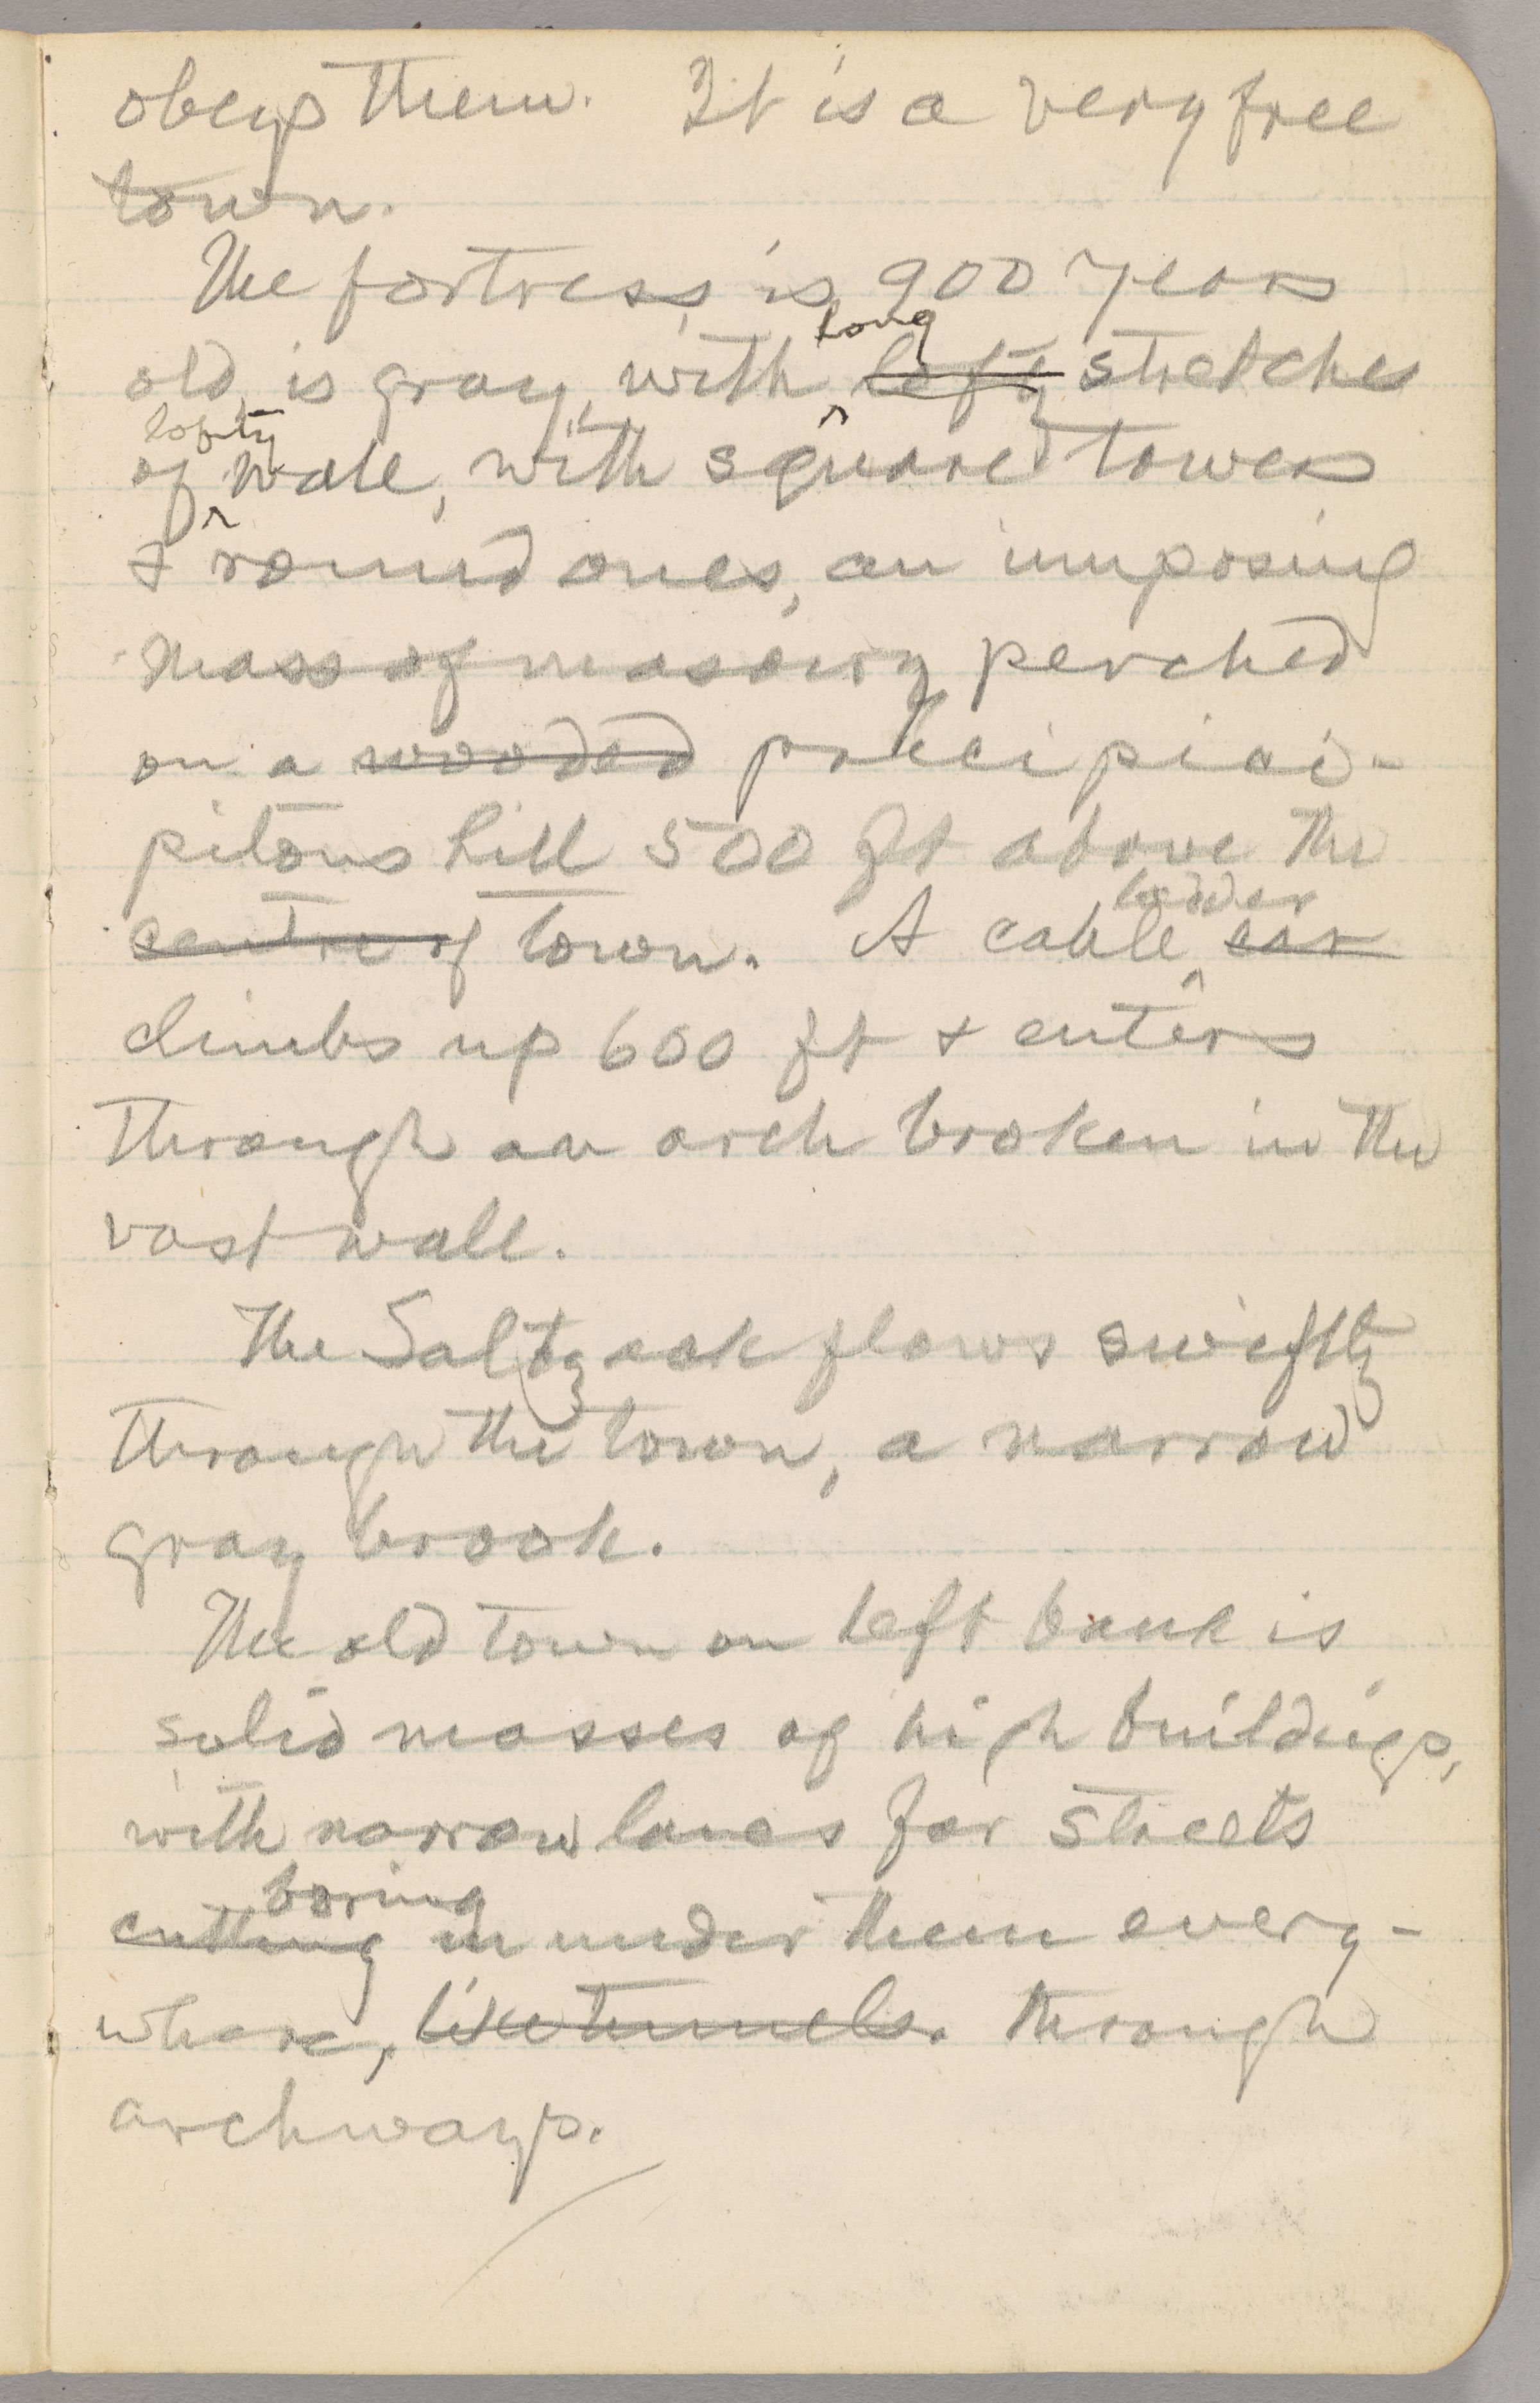 obeys them. It is a very free
town.
The fortress is 900 years
old, is gray, with long lofty stretches
of lofty wall, with square towers
& round ones, an imposing
mass of masonry perched
on a wooded
pitous hill 500 ft above the
centre of town. A cable ladder car
climbs up 600 ft & enters
through an arch broken in the
vast wall.
The Saltzack flows swiftly
through the town, a narrow
gray brook.
The old town on left bank is
solid masses of high buildings,
with narrow lanes for streets
cutting boring in under them every-
where, like tunnels. through
archways.